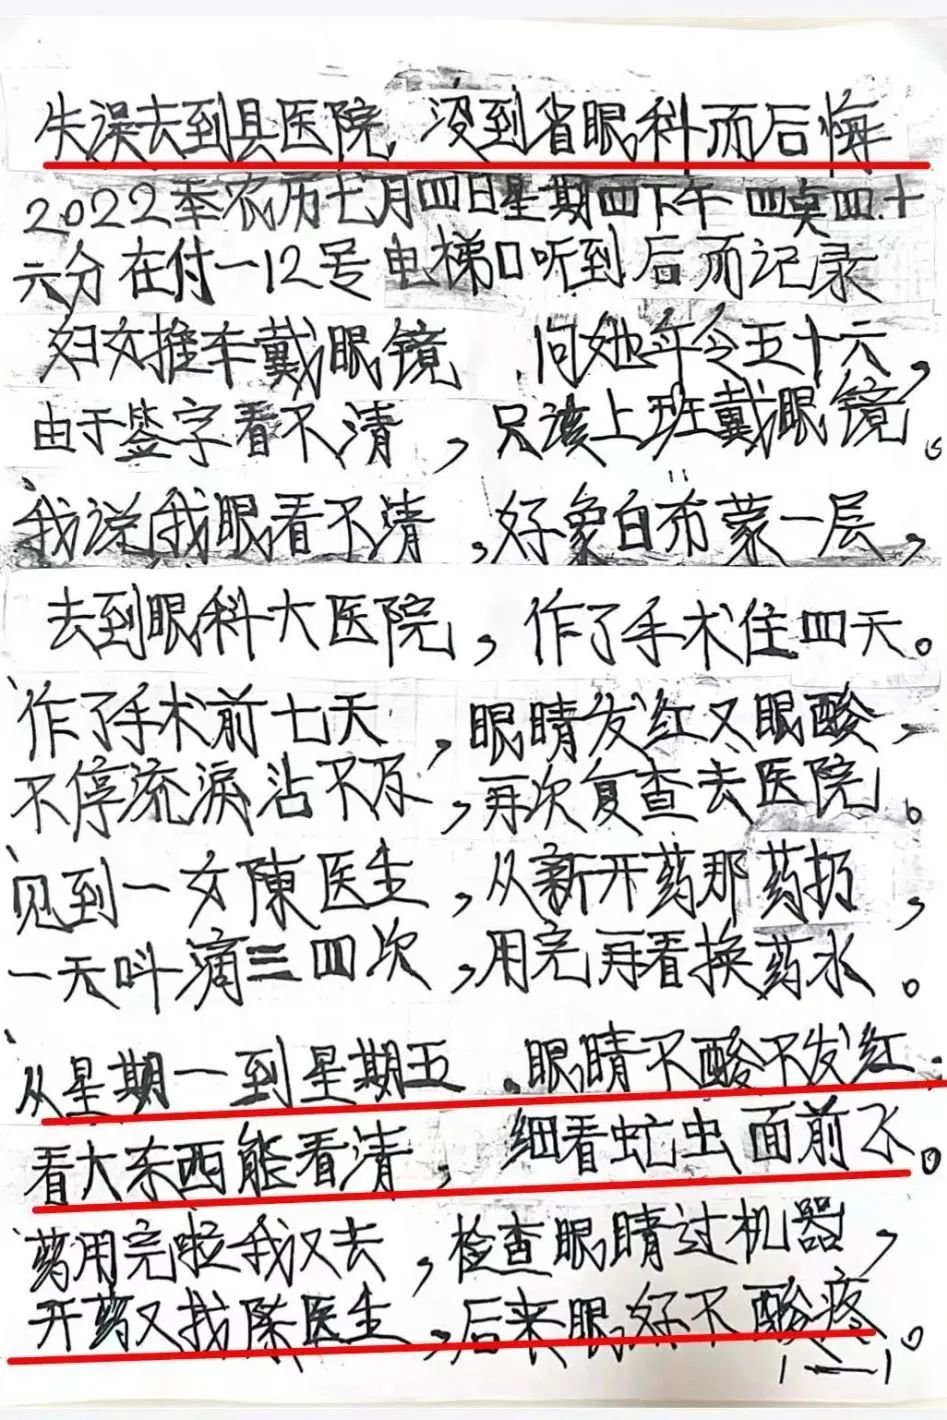 失误去到县医院 没到省眼科而后悔
2022年农历七月四日星期四下午 四点四十
六分在付一12号电梯口听到后而记录
妇女推车戴眼镜 问她年令五十六,
由于签字看不清,只该上班戴眼镜。
我说我眼看不清,好象白布蒙一层,
去到眼科大医院,作了手术住四天。
作了手术前七天,眼睛发红又眼酸,
不停流淚沾不及,再次复查去医院。
见到一女陳医生,从新开药那药扔,
一天叫滴三四次,用完再看换药水。
从星期一到星期五.眼睛不酸不发红.
看大东西能看清,细看虻虫面前飞。
药用完啦我又去,检查眼睛过机器,
开药又找陈医生,后来眼好不酸疼。
1—1